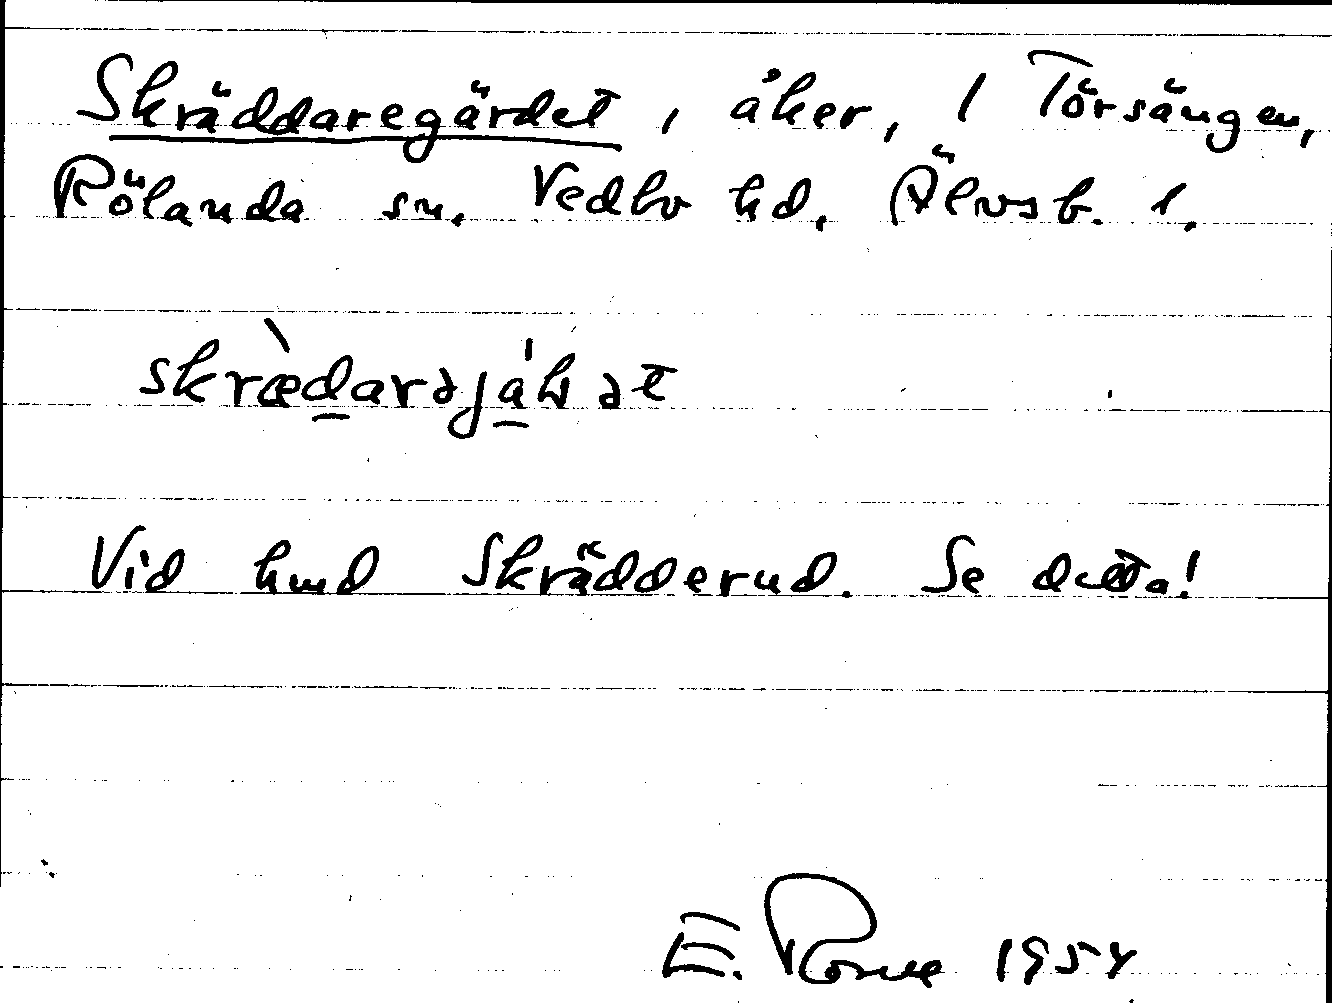 Skräddaregärdet, åker, 1 Törsängen,
Rölanda sn. Vedbo hd, Älvsb. l.
Vid hmd Skrädderud. Se detta!
E. 1954